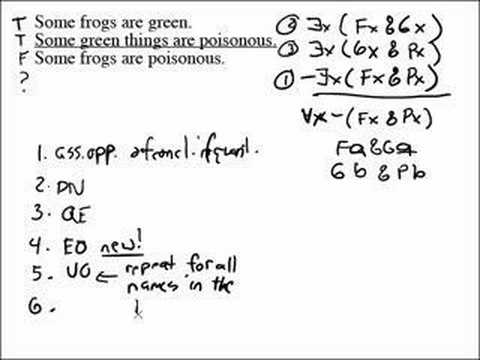 T Some frogs are green.
T Some green things are poisonous.
F Some frogs are poisonous.
?
② ∃x (Fx & Gx)
③ ∃x (Gx & Px)
① -∃x (Fx & Px)
∀x - (Fx & Px)
Fa & Ga
Gb & Pb
1. ass. opp. of concl. if quest.
2. DN
3. QE
4. EO new!
5. UO ← repeat for all
names in the
6.